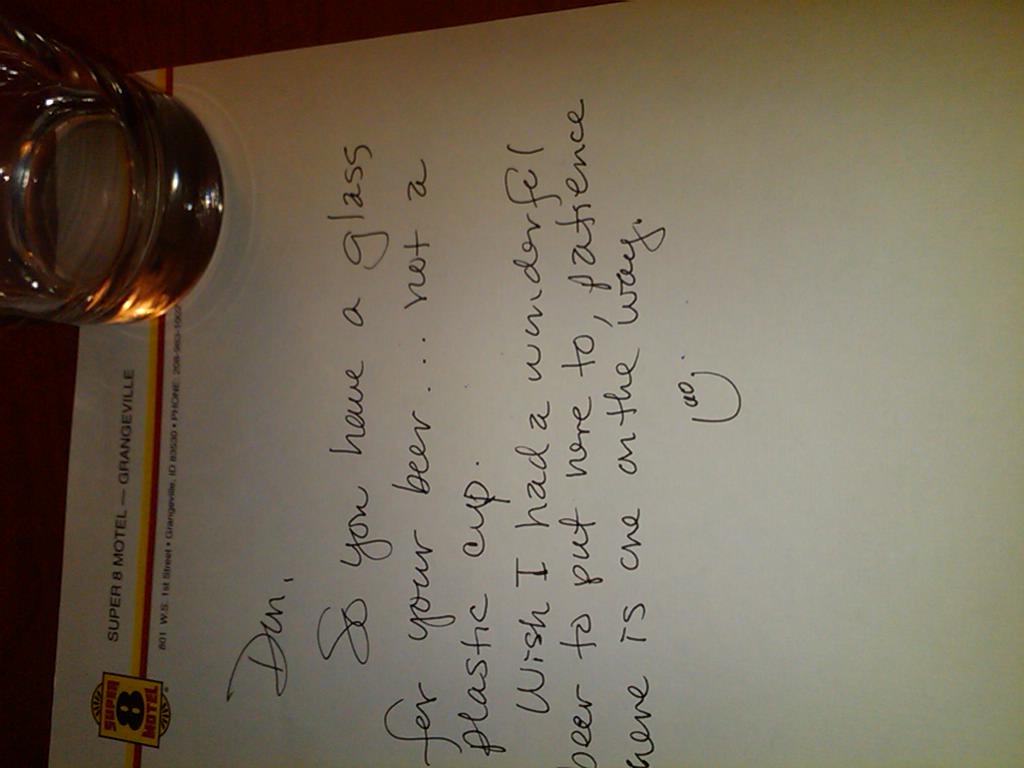 SUPER 8 MOTEL
SUPER 8 MOTEL — GRANGEVILLE
801 W.S. 1st Street • Grangeville, ID 83530 • PHONE: 208-983-1002
Dan,
So you have a glass
for your beer... not a
plastic cup.
Wish I had a wonderful
beer to put here to, patience
here is one on the way.